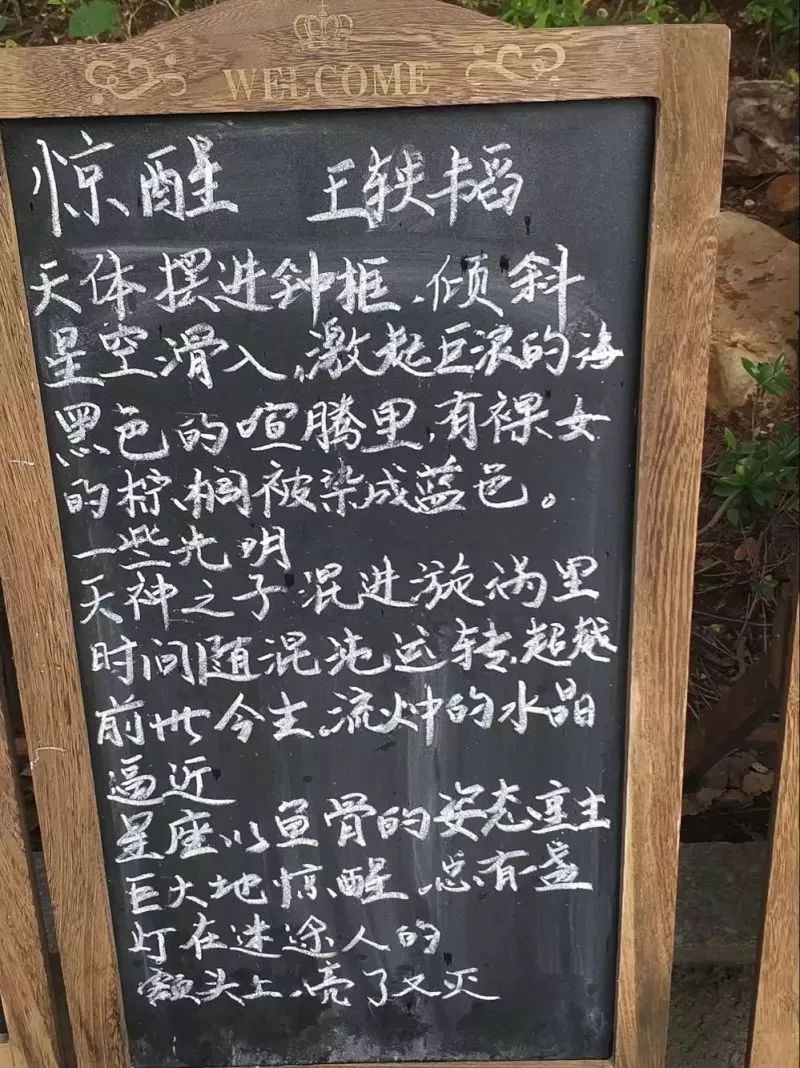 WELCOME
惊醒 王轶韦韬
天体摆进钟框,倾斜
星空滑入,激起巨浪的海
黑色的喧腾里,有裸女
的柠、榈被染成蓝色。
一些光明
天神之子混进旋涡里
时间随混沌运转,超越
前世今生,流火中的水晶
逼近
星座以鱼骨的姿态
巨大地惊醒,总有一盏
灯在迷途人的
额头上,亮了又灭